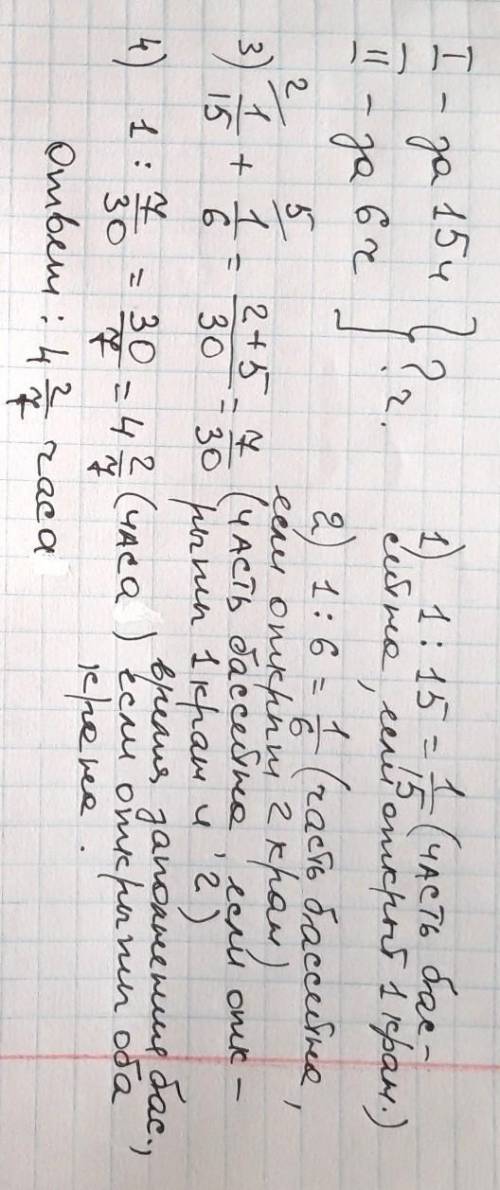 I – за 15 ч } ? ч.
II – за 6 ч
1) 1 : 15 = 1/15 (часть бас-
сейна, если открыт 1 кран.)
2) 1 : 6 = 1/6 (часть бассейна,
если открыт 2 кран)
3) 2/ 1/15 + 5/ 1/6 = 2+5/30 = 7/30 (часть бассейна, если отк-
рыты 1 кран и 2)
4) 1 : 7/30 = 30/7 = 4 2/7 (часа) время заполнения бас.,
если открыты оба
крана.
Ответ : 4 2/7 часа